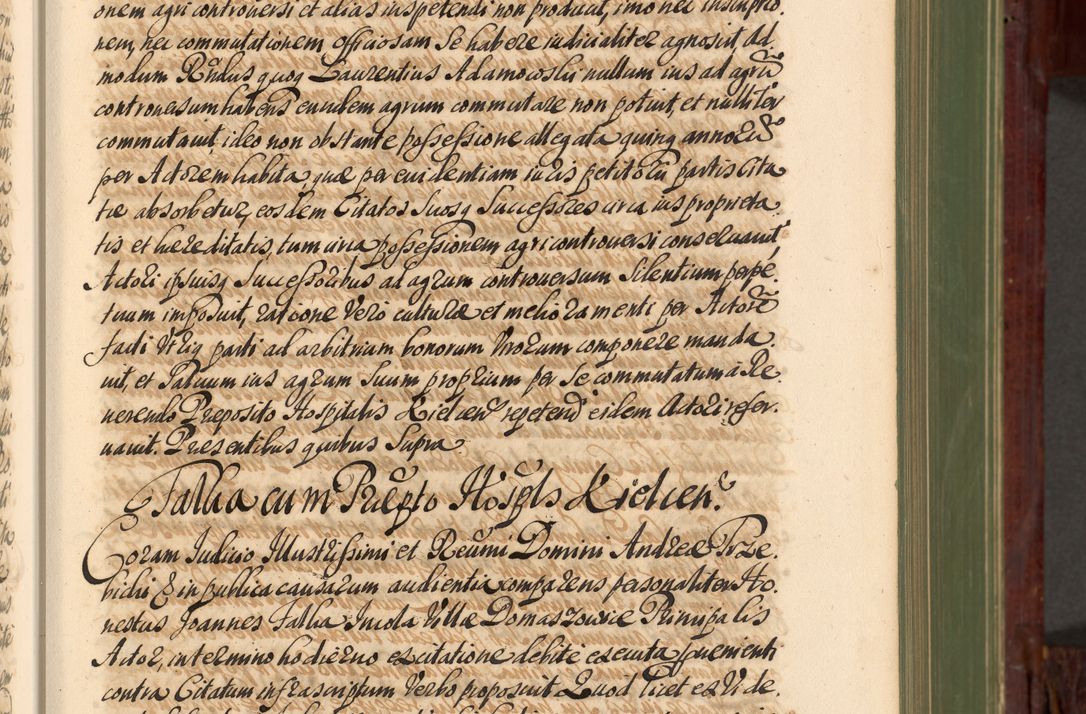 onem agri controversi et alias inspetendi non producat, imo nec inscriptio.
nem, nec commutationem officiosam se habere iudicialiter agnoscit, ad
modum Rndus quoq Laurentius Adamowski nullum ius ad agrū
controversum habens eundem agrum commutare non potuit, et nulliter
commutavit, ideo non obstante possessione allegata quinq annorū
per Actorem habita, quæ per evidentiam iuris petitorii partis cita
tæ absorbetur, eosdem Citatos suosq Successores circa ius proprieta
tis et hæreditatis, tum circa possessionem agri controversi conservavit,
Actori ipsiusq Successoribus ad agrum controversum silentium perpe.
tuum imposuit, ratione vero culturæ et melioramenti per Actorē
facti utriq parti ad arbitrium bonorum virorum componere manda.
vit, et salvum ius agrum suum proprium per se commutatum à Re.
verendo Præposito Hospitalis Kielcen repetend eidem Actori reser.
vavit. Præsentibus quibus supra
Fallha cum Præpto Hosplis Kielcen.
Coram Iudicio Illustrissimi et Reumi Domini Andreæ Trze
bicki & in publica causarum audientia comparens personaliter Ho.
nestus Joannes Fallha Incola Villæ Domaszowice Principalis
Actor, in termino hodierno ex citatione debite executa provenienti
contra Citatum infrascriptum verbo proposuit Quod licet ex vi de.